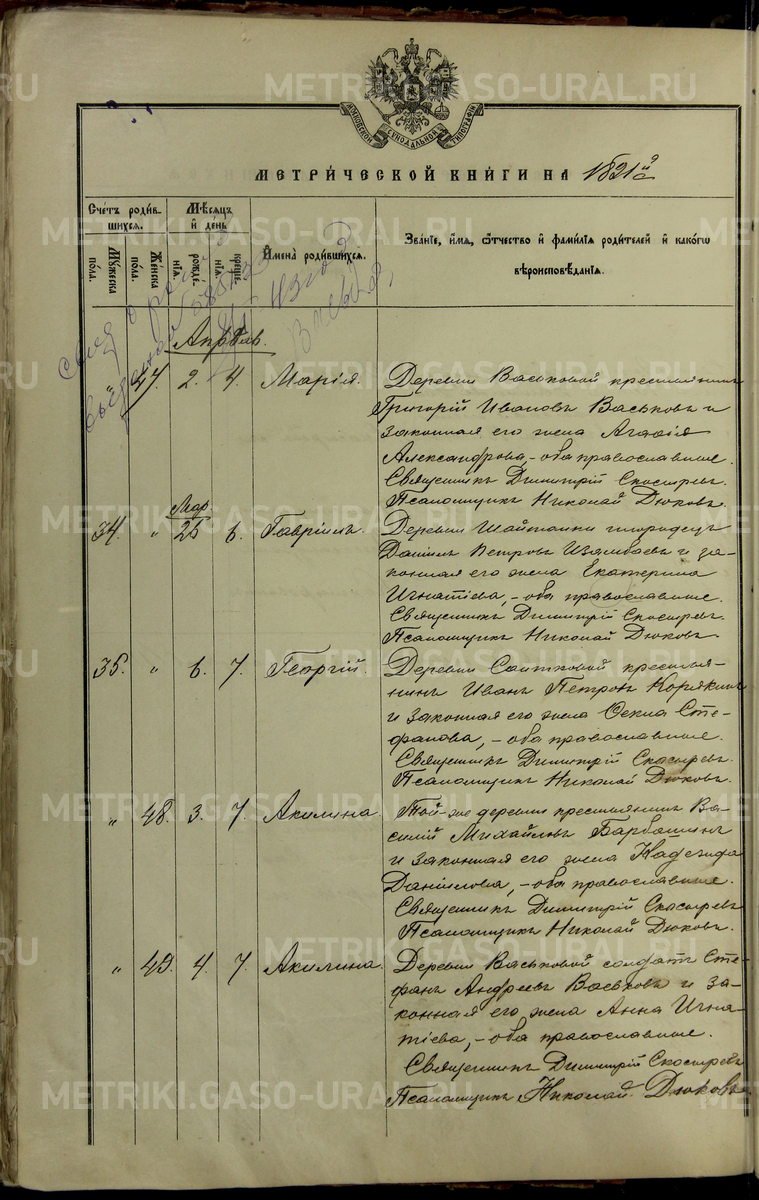 METRIKI.GASO-URAL.RU
МОСКОВСКОЙ СѴНОДАЛЬНОЙ ТИПОГРАФІИ
МЕТРИ́ЧЕСКОЙ КНИ́ГИ НА 1891 й
Сче́тъ роди́в-
шихся.
Мѣ́сяцъ
и҆ де́нь
И҆мена̀ роди́вшихся.
Зва́нїе, и҆́мѧ, ѻ҆́тчество и҆ фами́лїѧ роди́телей и҆ како́гѡ
вѣроисповѣ́данїѧ.
Мꙋ́жеска
по́ла.
Же́нска
по́ла.
рожде́-
нїѧ.
креще́-
нїѧ.
Апрѣль.
47. 2. 4. Марія.
Деревни Васьковой крестьянинъ
Григорій Ивановъ Васьковъ и
законная его жена Агафія
Александрова, - оба православные.
Священникъ Димитрій Скосыревъ.
Псаломщикъ Николай Дюковъ.
Мар.
34. " 25 6. Гавріилъ.
Деревни Шайтанки инородецъ
Даніилъ Петровъ и за-
конная его жена Екатерина
Игнатіева, - оба православные.
Священникъ Димитрій Скосыревъ.
Псаломщикъ Николай Дюковъ.
35. " 6. 7. Георгій.
Деревни Соитковой крестья-
нинъ Иванъ Петровъ Корякинъ
и законная его жена Ѳекла Сте-
фанова, - оба православные.
Священникъ Димитрій Скосыревъ.
Псаломщикъ Николай Дюковъ.
" 48. 3. 7. Акилина.
Той-же деревни крестьянинъ Ва-
силій Михайловъ Барбашинъ
и законная его жена Надежда
Даніилова, - оба православные.
Священникъ Димитрій Скосыревъ
Псаломщикъ Николай Дюковъ.
" 49. 4. 7. Акилина.
Деревни Васьковой солдатъ Сте-
фанъ Андреевъ Васьковъ и за-
конная его жена Анна Игна-
тіева, - оба православные.
Священникъ Димитрій Скосыревъ
Псаломщикъ Николай Дюковъ